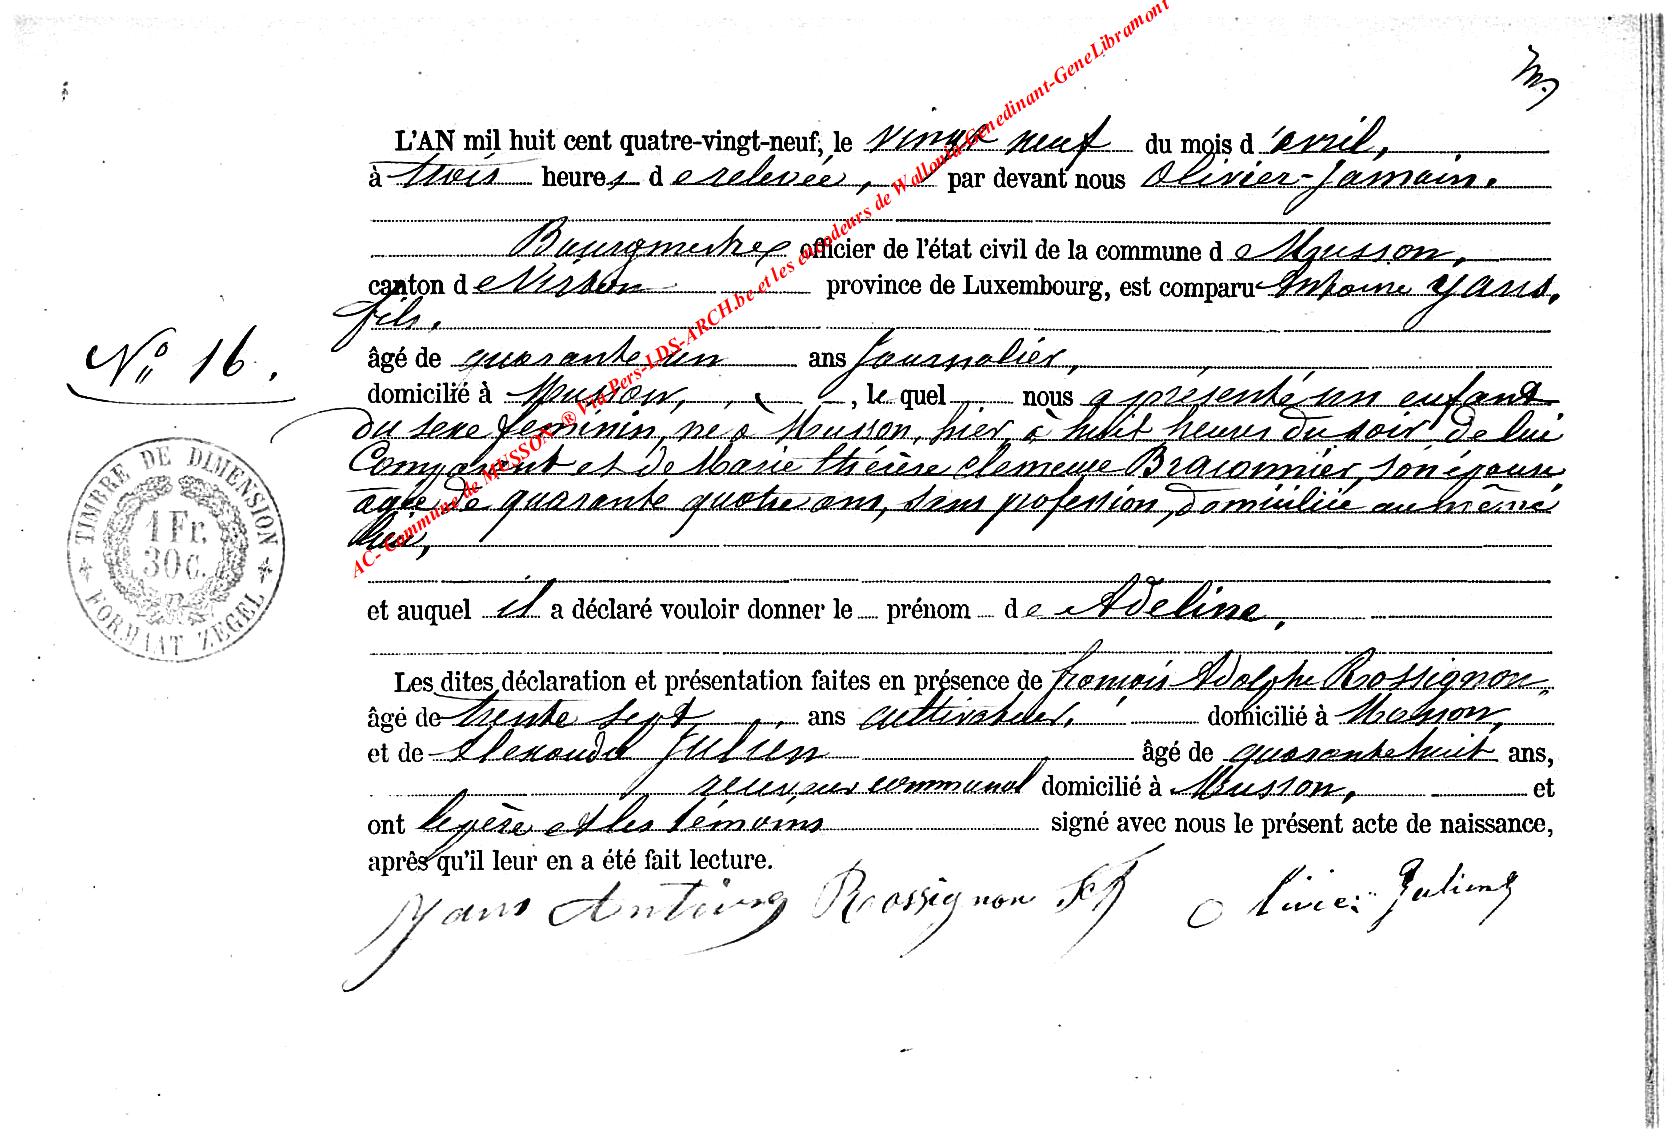 L'AN mil huit cent quatre-vingt-neuf, le vingt neuf du mois d'avril,
à trois heures de relevée, par devant nous Olivier-Jamain.
Bourgmestre officier de l'état civil de la commune de Musson,
canton de Virton province de Luxembourg, est comparu Antoine Yans,
fils,
âgé de quarante un ans Journalier,
domicilié à Musson, , le quel nous a présenté un enfant
du sexe féminin, né à Musson, hier, à huit heures du soir de lui
Comparant et de Marie thérèse clemence Braconnier, son épouse
agée de quarante quatre ans, sans profession, domiciliée au même
lieu,
et auquel il a déclaré vouloir donner le prénom de Adeline,
Les dites déclaration et présentation faites en présence de françois Adolphe Rossignon
âgé de trente sept ans cultivateur, domicilié à Musson,
et de Alexandre Julien âgé de quarante huit ans,
receveur communal domicilié à Musson, et
ont le père et les témoins signé avec nous le présent acte de naissance,
après qu'il leur en a été fait lecture.
Yans Antoine Rossignon Olivier Julien
N° 16.
TIMBRE DE DIMENSION
1 Fr.
30 c.
FORMAAT ZEGEL
AC- Commune de MUSSON ® Via Pers-LDS-ARCH.be et les encodeurs de Wallonia-Genedinant-GeneLibramont